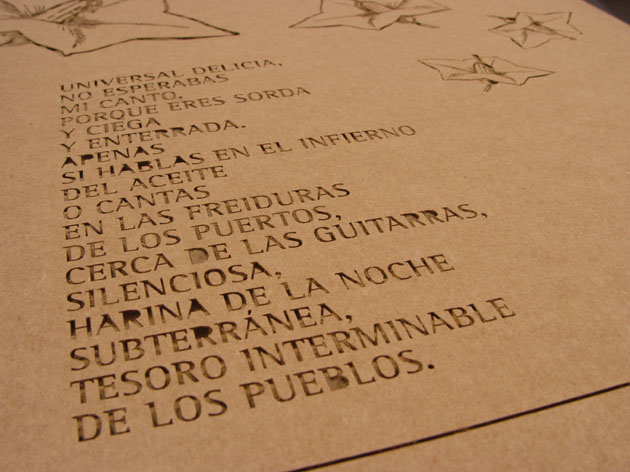 UNIVERSAL DELICIA,
NO ESPERABAS
MI CANTO,
PORQUE ERES SORDA
Y CIEGA
Y ENTERRADA.
APENAS
SI HABLAS EN EL INFIERNO
DEL ACEITE
O CANTAS
EN LAS FREIDURAS
DE LOS PUERTOS,
CERCA DE LAS GUITARRAS,
SILENCIOSA,
HARINA DE LA NOCHE
SUBTERRÁNEA,
TESORO INTERMINABLE
DE LOS PUEBLOS.